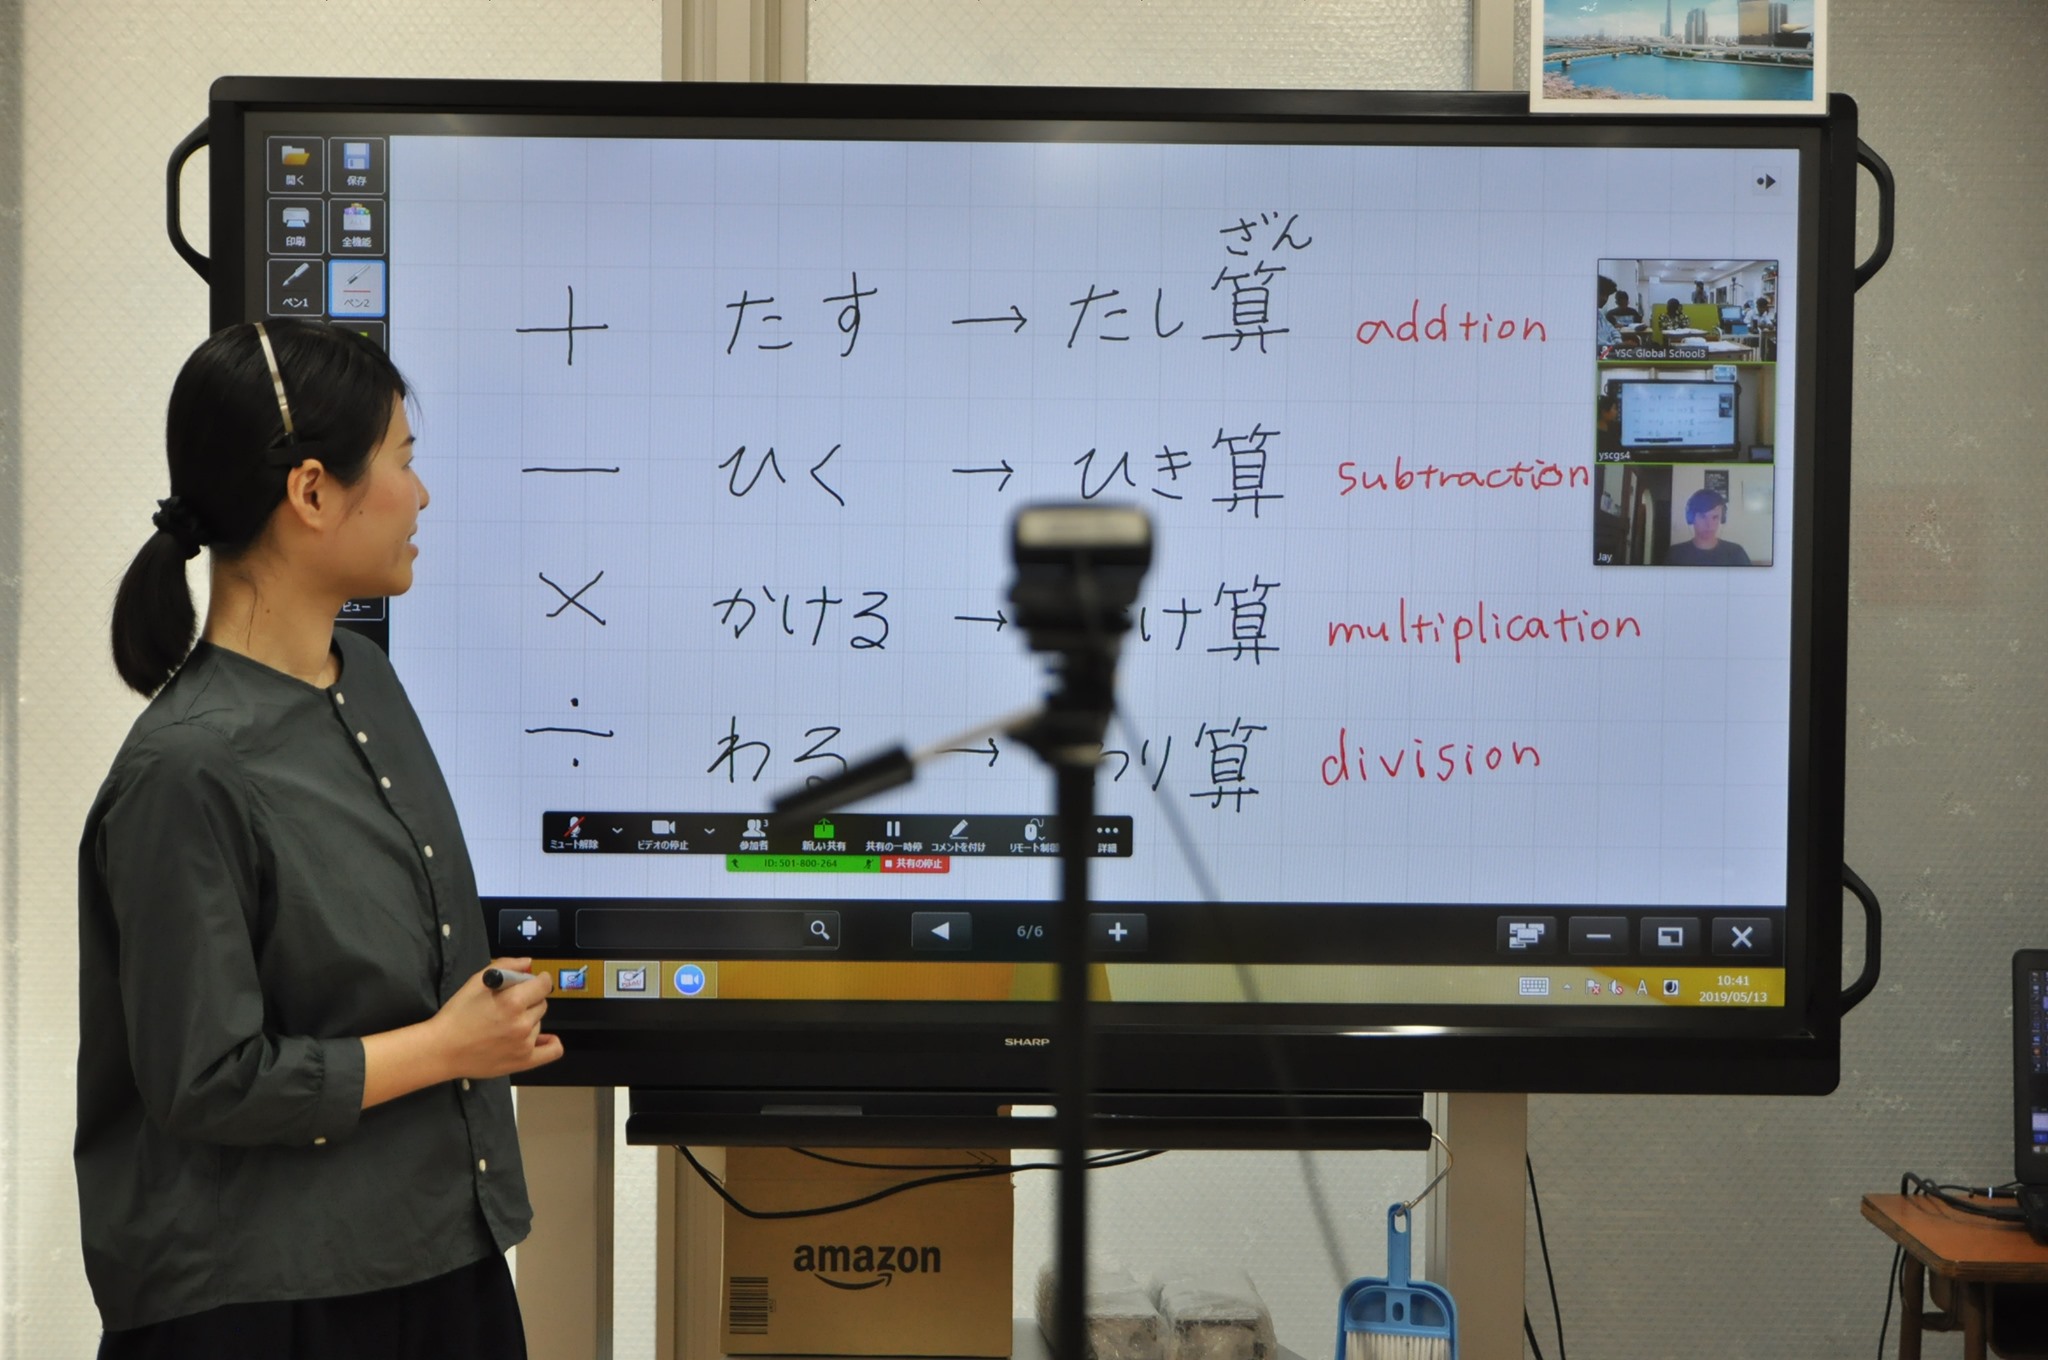 開く 保存
印刷 全機能
ペン1 ペン2
ざん
+ たす → たし算 addtion
− ひく → ひき算 subtraction
× かける → け算 multiplication
÷ わる → り算 division
YSC Global School3
yscgs4
Jay
ビュー
ミュート解除 ビデオの停止 参加者 3 新しい共有 共有の一時停 コメントを付け リモート制御 詳細
ID: 501-800-264 共有の停止
6/6
A
10:41
2019/05/13
SHARP
amazon